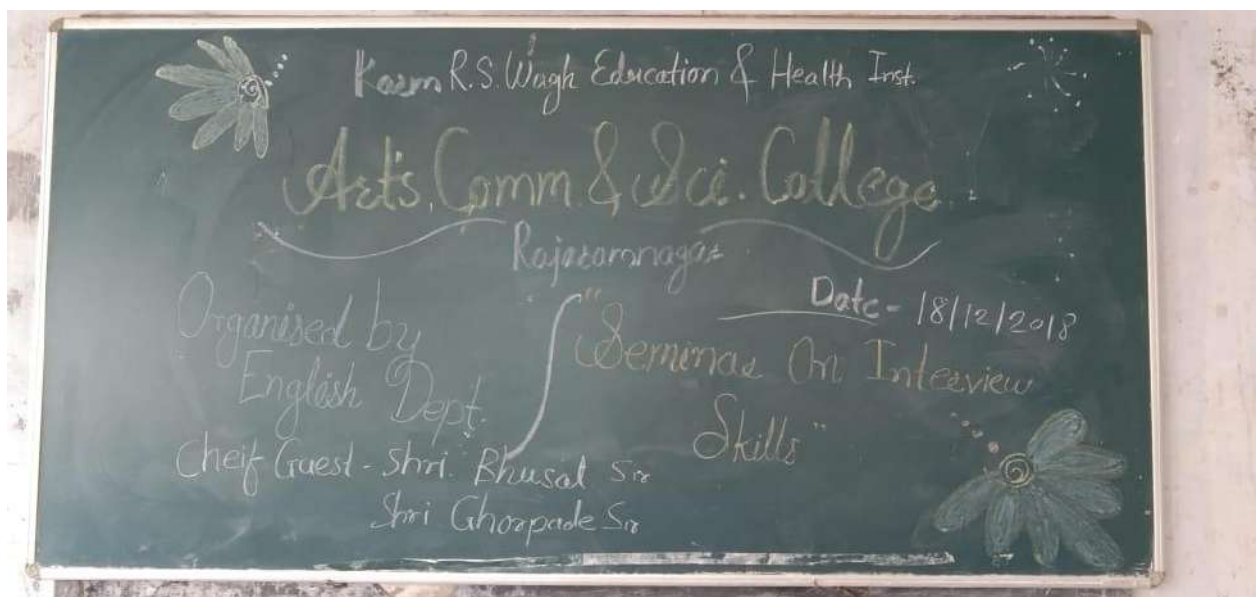 Karm R.S. Wagh Education & Health Inst.
Art's, Comm & Sci. College
Rajaramnagar
Date - 18/12/2018
Organised by
English Dept.
"Seminar On Interview
Skills"
Cheif Guest - Shri. Bhusal Sir
Shri Ghorpade Sir